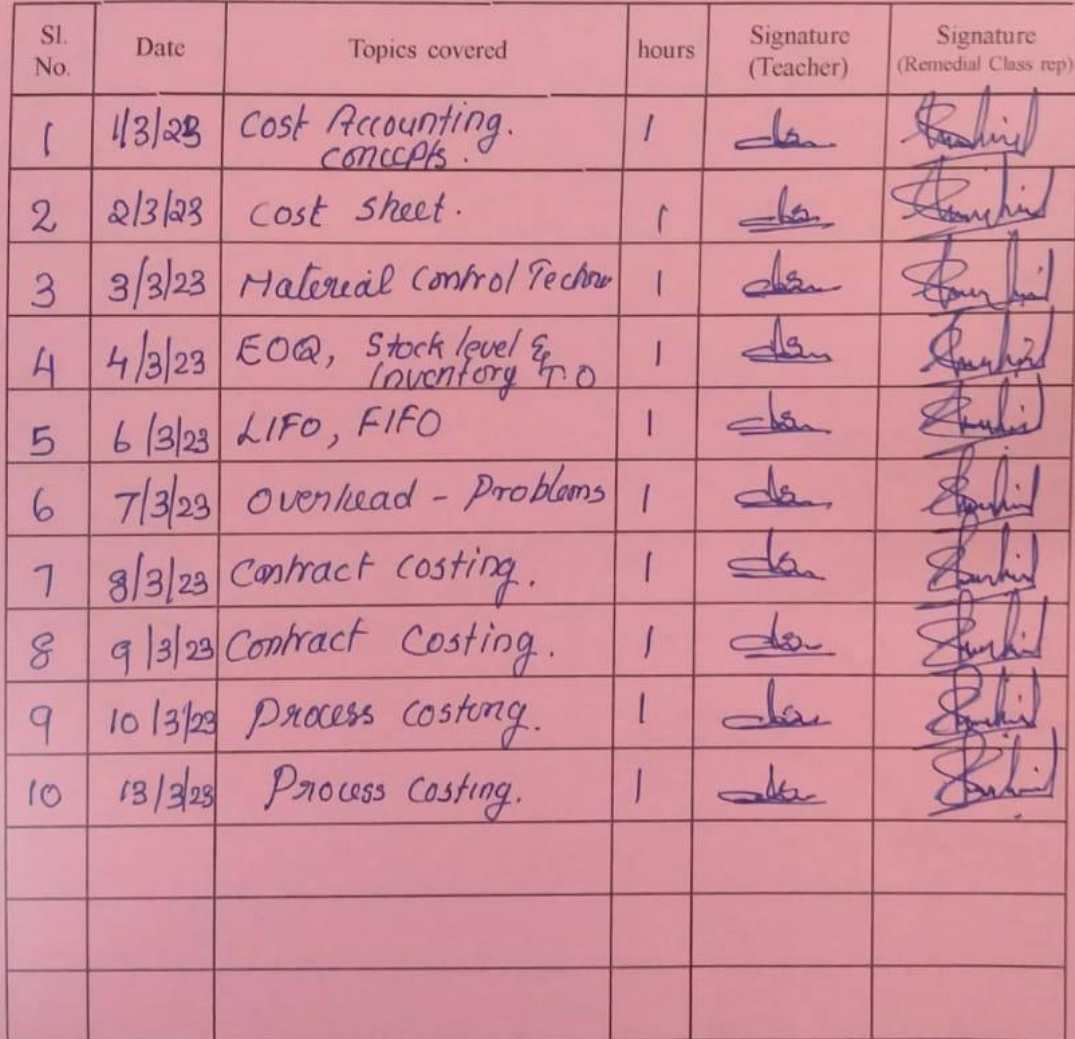 Sl. No. Date Topics covered hours Signature (Teacher) Signature (Remedial Class rep)
1 1/3/23 Cost Accounting. concepts. 1
2 2/3/23 Cost sheet. 1
3 3/3/23 Material Control 1
4 4/3/23 EOQ, Stock level & Inventory T.O 1
5 6/3/23 LIFO, FIFO 1
6 7/3/23 Overhead - Problems 1
7 8/3/23 Contract costing. 1
8 9/3/23 Contract Costing. 1
9 10/3/23 Process costing. 1
10 13/3/23 Process Costing. 1